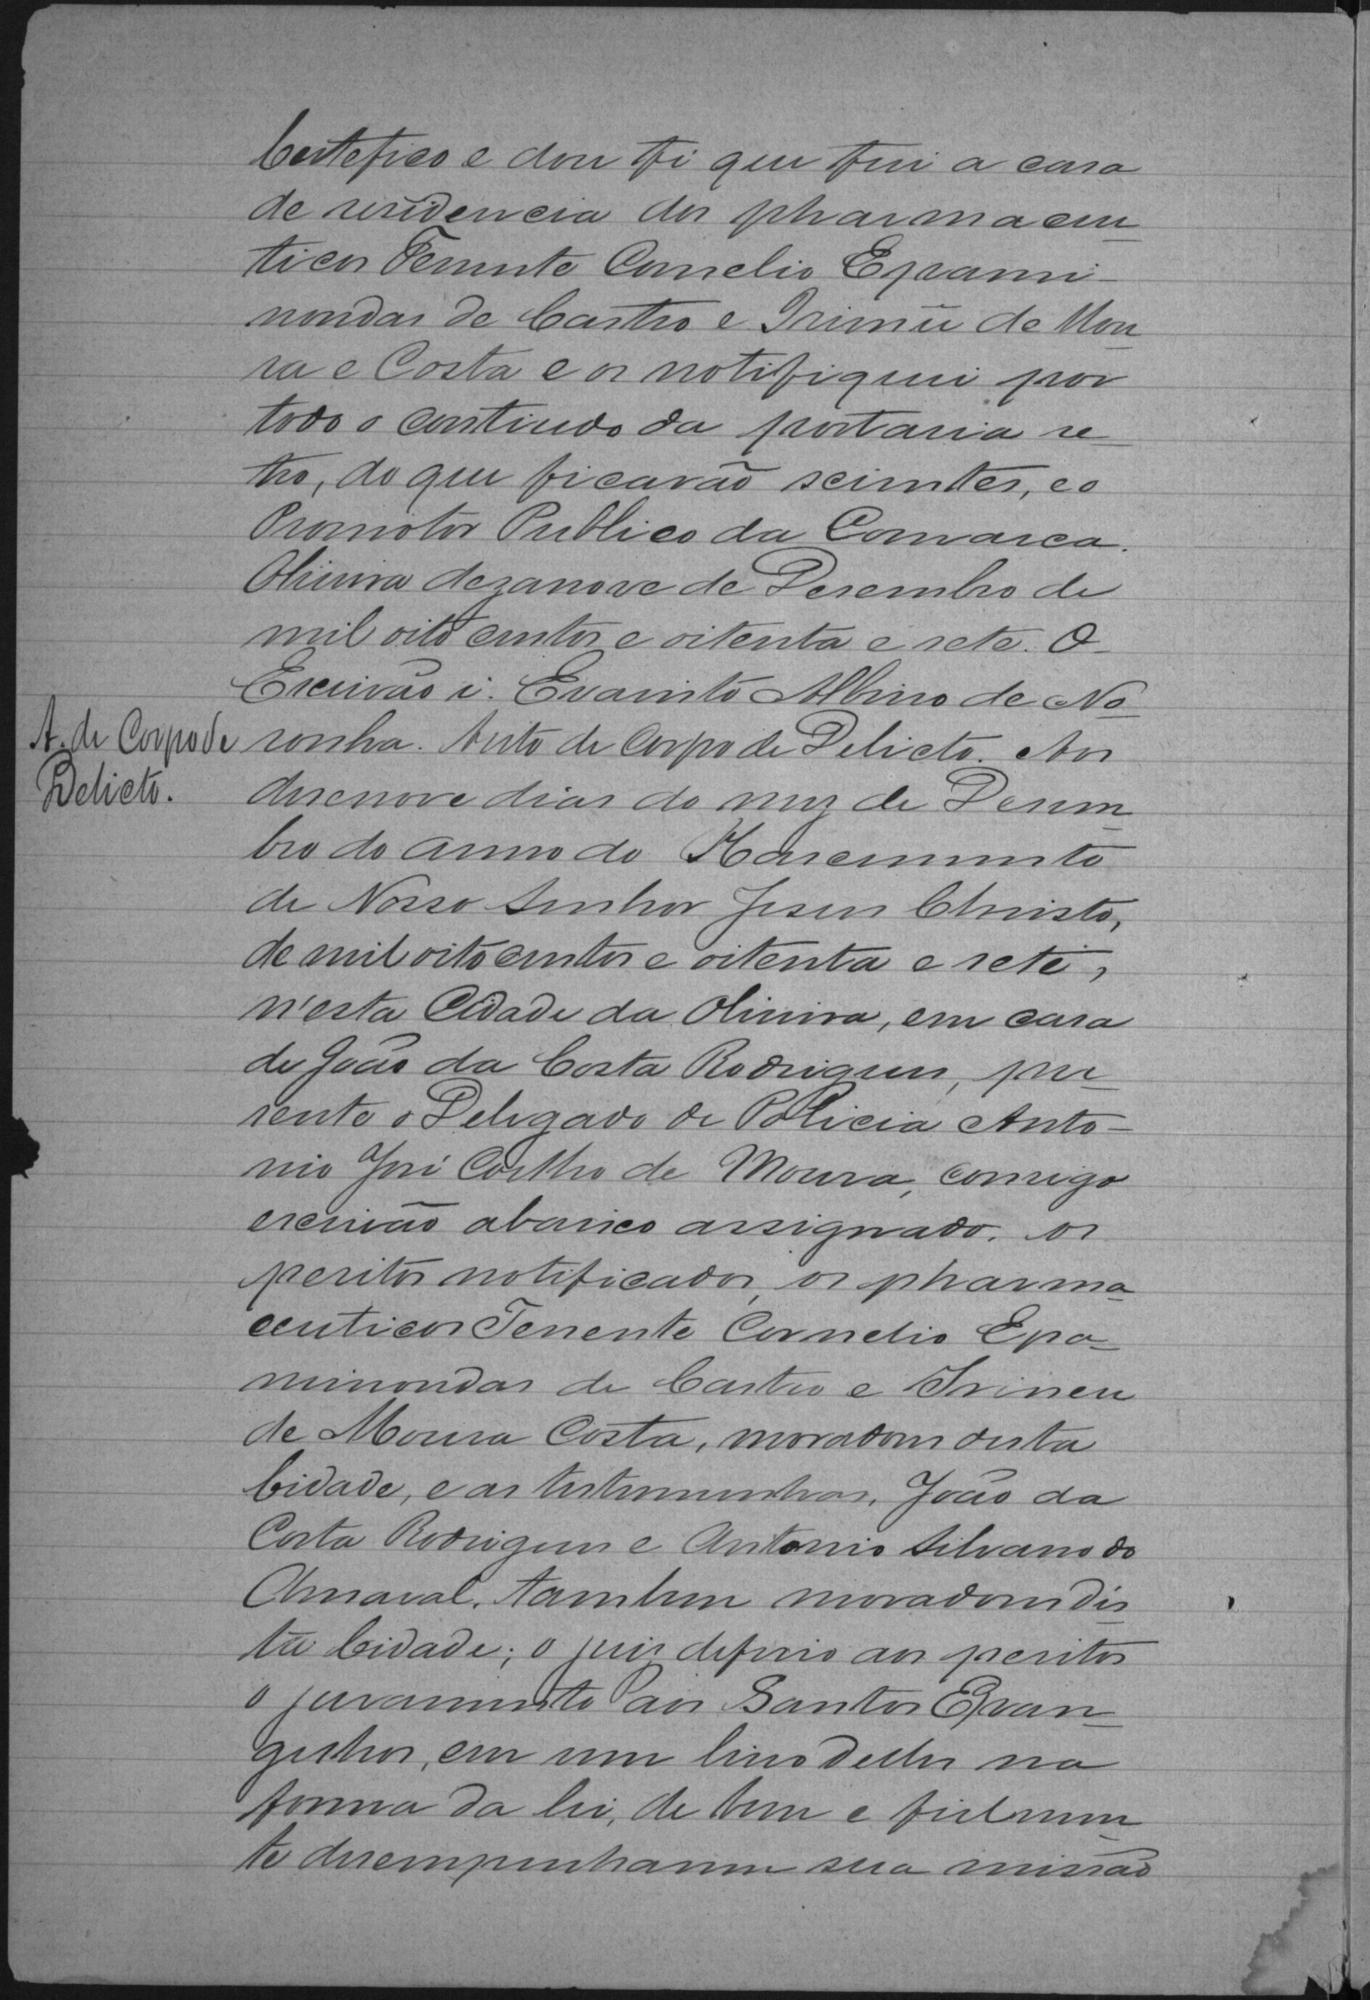 Certefico e dou fé que fui a casa
de residencia dos pharmaceu-
ticos Tenente Cornelio Epami-
nondas de Castro e Irineu de Mou-
ra e Costa e os notifiquei por
todo o contiudo da portaria re-
tro, do que ficarão scientes, e o
Promotor Publico da Comarca.
Oliveira dezanove de Desembro de
mil oito centos e oitenta e sete. O
Escrivão i. Evaristo Albino de No-
ronha. Auto de Corpo de Delicto. Aos
A. de Corpo de
Delicto.
desenove dias do mez de Desem-
bro do anno do Nascemento
de Nosso Senhor Jesus Christo,
de mil oito centos e oitenta e sete,
n'esta Cidade da Oliveira, em casa
de João da Costa Rodrigues, pre-
sente o Delegado de Policia Anto-
nio José Coelho de Moura, comigo
escrivão abaxico assignado, os
peritos notificados, os pharma-
ceuticos Tenente Cornelio Epa-
minondas de Castro e Irineu
de Moura Costa, moradores desta
Cidade, e as testemunhas, João da
Costa Rodrigues e Antonio Silvano do
Amaval, tambem moradores des-
ta Cidade; o juiz deferio aos peritos
o juramento aos Santos Evan-
gelhos, em um livro delles na
forma da lei, de bem e fielmen-
te desempenharem sua missão